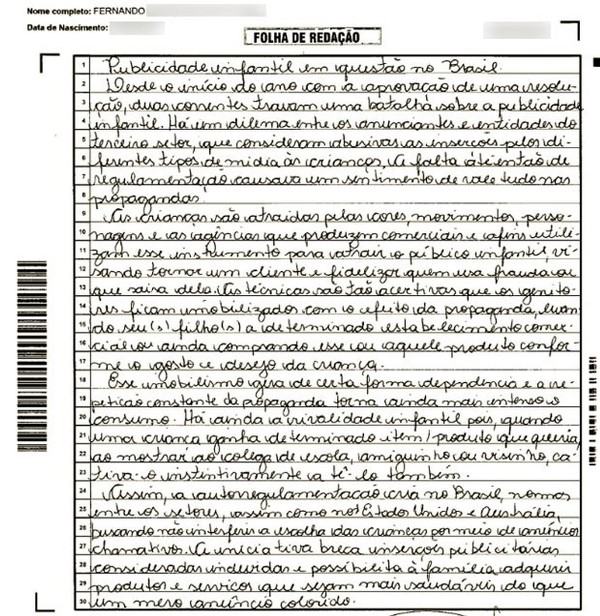 Nome completo: FERNANDO
Data de Nascimento:
FOLHA DE REDAÇÃO
1 Publicidade infantil em questão no Brasil.
2 Desde o início do ano com a aprovação de uma resolu-
3 ção, duas correntes travam uma batalha sobre a publicidade
4 infantil. Há um dilema entre os anunciantes e entidades do
5 terceiro setor, que consideram abusivas as inserções pelos di-
6 ferentes tipos de mídia às crianças. A falta até então de
7 regulamentação causava um sentimento de vale tudo nas
8 propagandas.
9 As crianças são atraídas pelas cores, movimentos, perso-
10 nagens e as agências que produzem comerciais e afins utili-
11 zam esse instrumento para atrair o público infantil, vi-
12 sando tornar um cliente e fidelizar quem usa fralda ou
13 que saiu dela. As técnicas são tão acertivas que os genito-
14 res ficam imobilizados com o efeito da propaganda, levan-
15 do seu(s) filho(s) a determinado estabelecimento comer-
16 cial ou ainda comprando esse ou aquele produto confor-
17 me o gosto e desejo da criança.
18 Esse imobilismo gera de certa forma dependência e a re-
19 petição constante da propaganda torna ainda mais intenso o
20 consumo. Há ainda a rivalidade infantil pois, quando
21 uma criança ganha determinado item/produto que queria,
22 ao mostrar ao colega de escola, amiguinho ou visinho, ca-
23 tiva-o instintivamente a tê-lo também.
24 Assim, a autorregulamentação cria no Brasil, normas
25 entre os setores, assim como nos Estados Unidos e Austrália,
26 buscando não interferir a escolha das crianças por meio de anúncio
27 chamativo. A iniciativa breca inserções publicitárias
28 consideradas indevidas e possibilita à família adquirir
29 produtos e serviços que sejam mais saudáveis do que
30 um mero anúncio colorido.